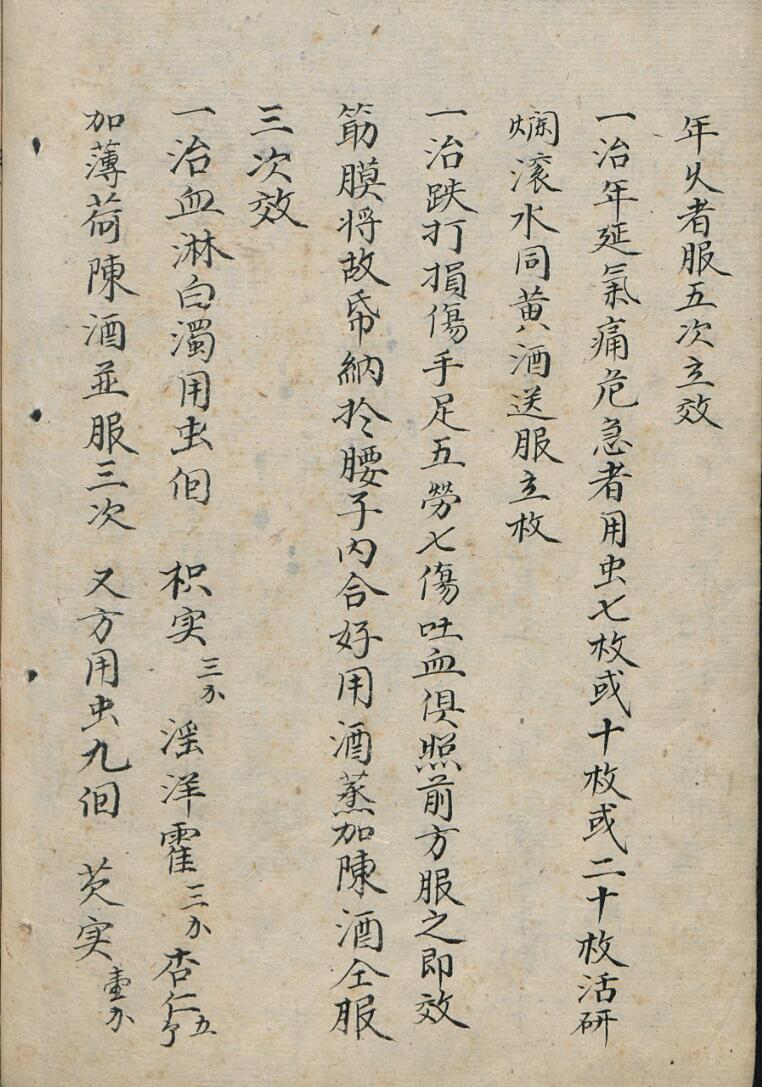 年久者服五次立效
一治年延氣痛危急者用虫七枚或十枚或二十枚活研
爛滚水同黄酒送服立枚
一治跌打損傷手足五勞七傷吐血俱照前方服之即效
筋膜将故帋納扵腰子内合好用酒蒸加陳酒仝服
三次效
一治血淋白濁用虫佪 枳实三分 滛洋霍三分 杏仁五
加薄荷陳酒並服三次 又方用虫九佪 芡实壹分